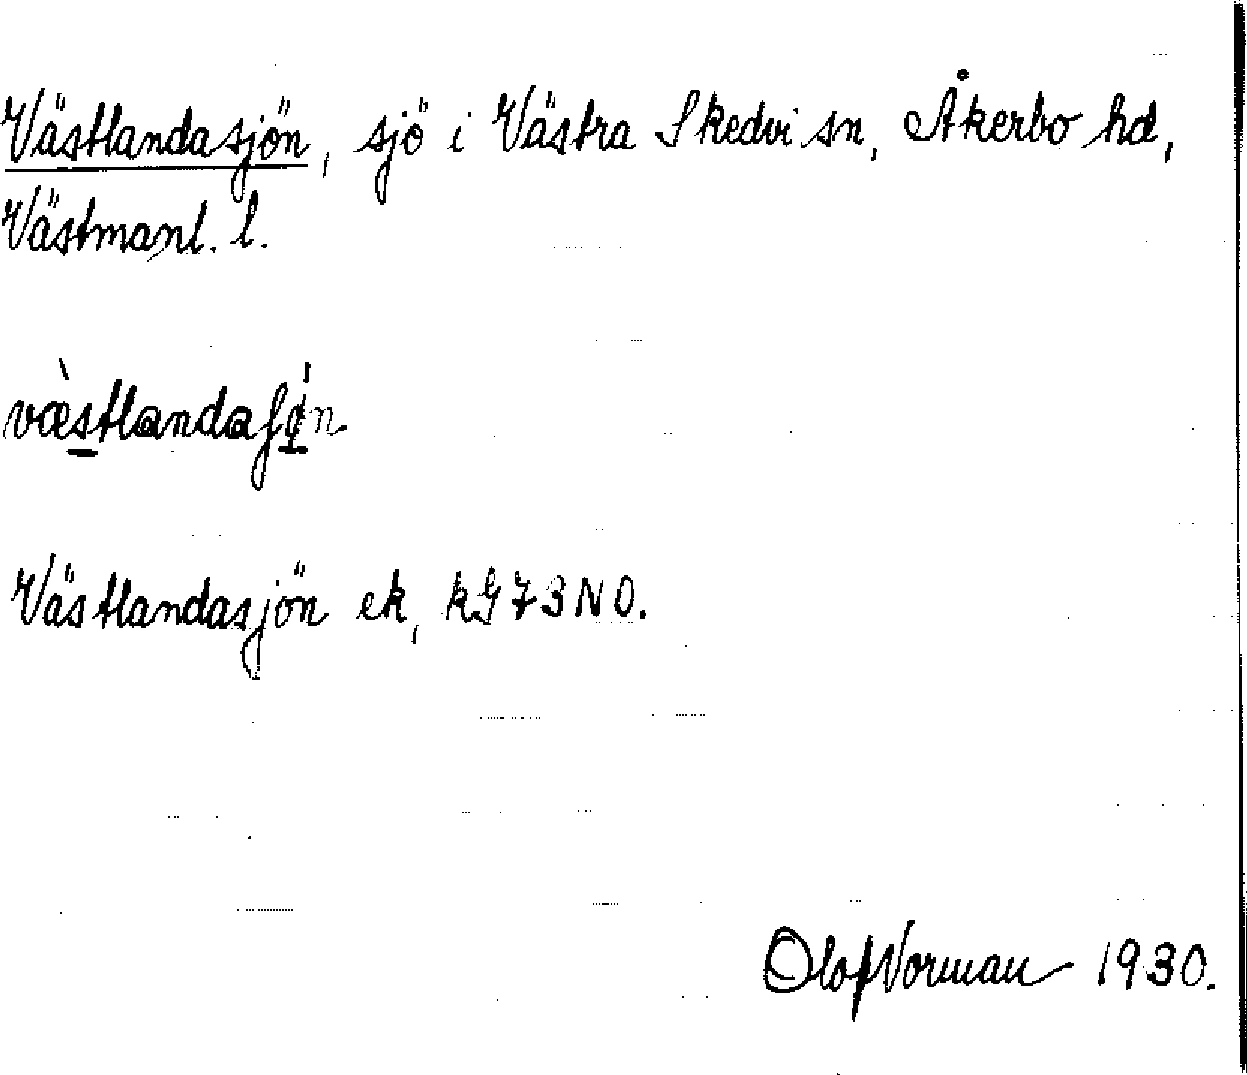 Västlandasjön, sjö i Västra Skedvi sn, Åkerbo hd,
Västmanl. l.
Västlandasjön ek, kG73NO.
Olof Vorman 1930.